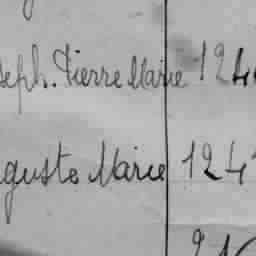 seph. Pierre Marie 124
guste Marie 124